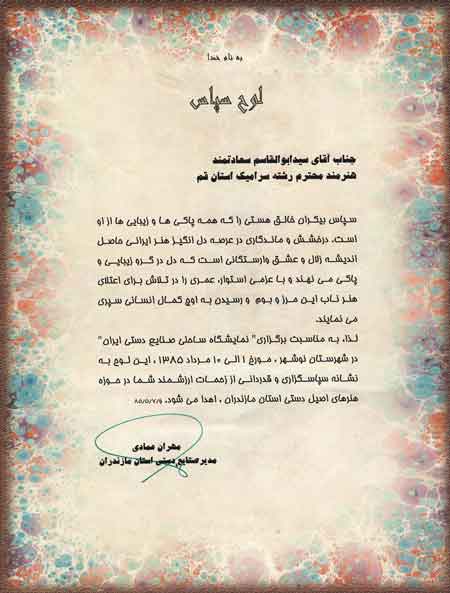 به نام خدا
لوح سپاس
جناب آقای سیدابوالقاسم سعادتمند
هنرمند محترم رشته سرامیک استان قم
سپاس بیکران خالق هستی را که همه پاکی ها و زیبایی ها از او
است. درخشش و ماندگاری در عرصه دل انگیز هنر ایرانی حاصل
اندیشه زلال و عشق وارستگانی است که دل در گرو زیبایی و
پاکی می نهند و با عزمی استوار، عمری را در تلاش برای اعتلای
هنر ناب این مرز و بوم و رسیدن به اوج کمال انسانی سپری
می نمایند.
لذا، به مناسبت برگزاری" نمایشگاه ساحلی صنایع دستی ایران"
در شهرستان نوشهر ، مورخ ۱ الی ۱۰ مرداد ۱۳۸۵ ، این لوح به
نشانه سپاسگزاری و قدردانی از زحمات ارزشمند شما در حوزه
هنرهای اصیل دستی استان مازندران ، اهدا می شود.
مهران عمادی
مدیر صنایع دستی استان مازندران